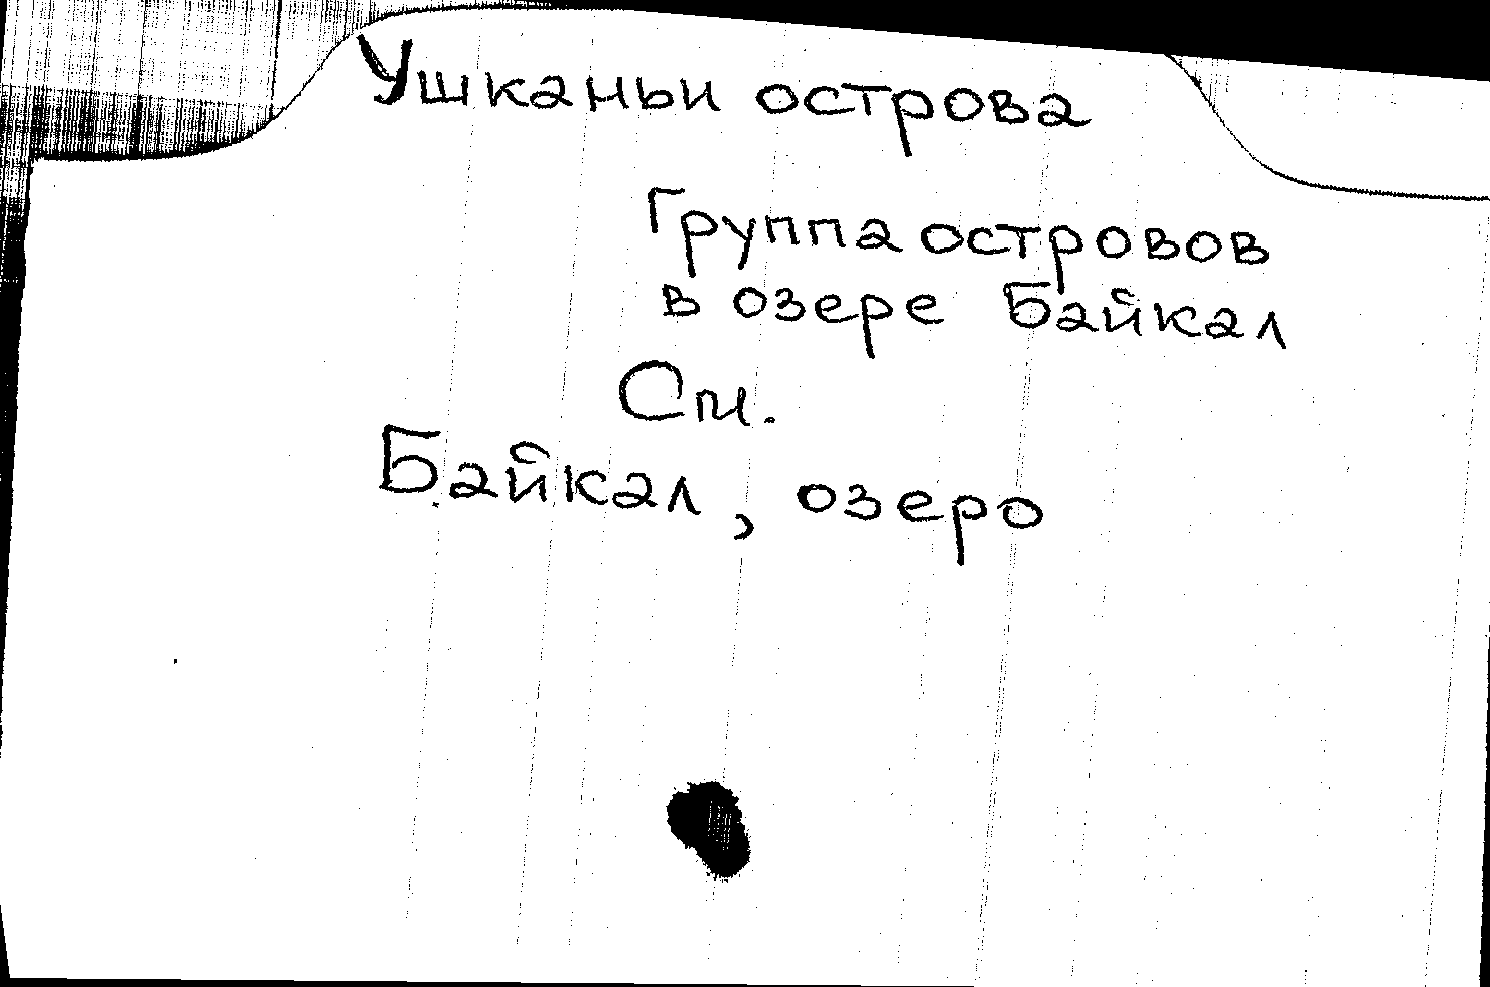 Ушканьи острова
Группа островов
в озере Байкал
См.
Байкал, озеро